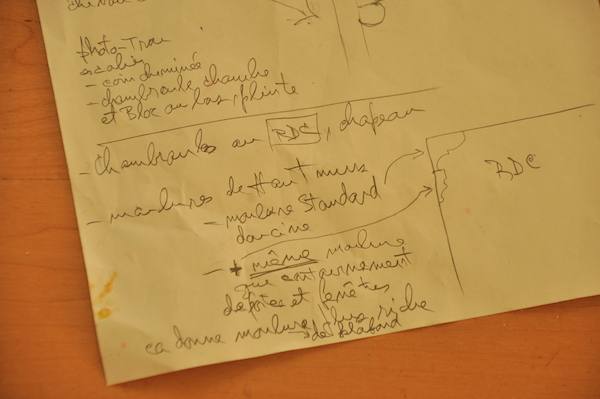 photo-Trou
escalier
- coin cheminée
- chambranle chambre
et Bloc au bas, plinte
- Chambranles au RDC, chapeau
- moulures de Haut murs
- moulure Standard
d'origine
RDC
- + même moulure
que contournement
de portes et fenêtres
ça donne moulure plus riche
de plafond